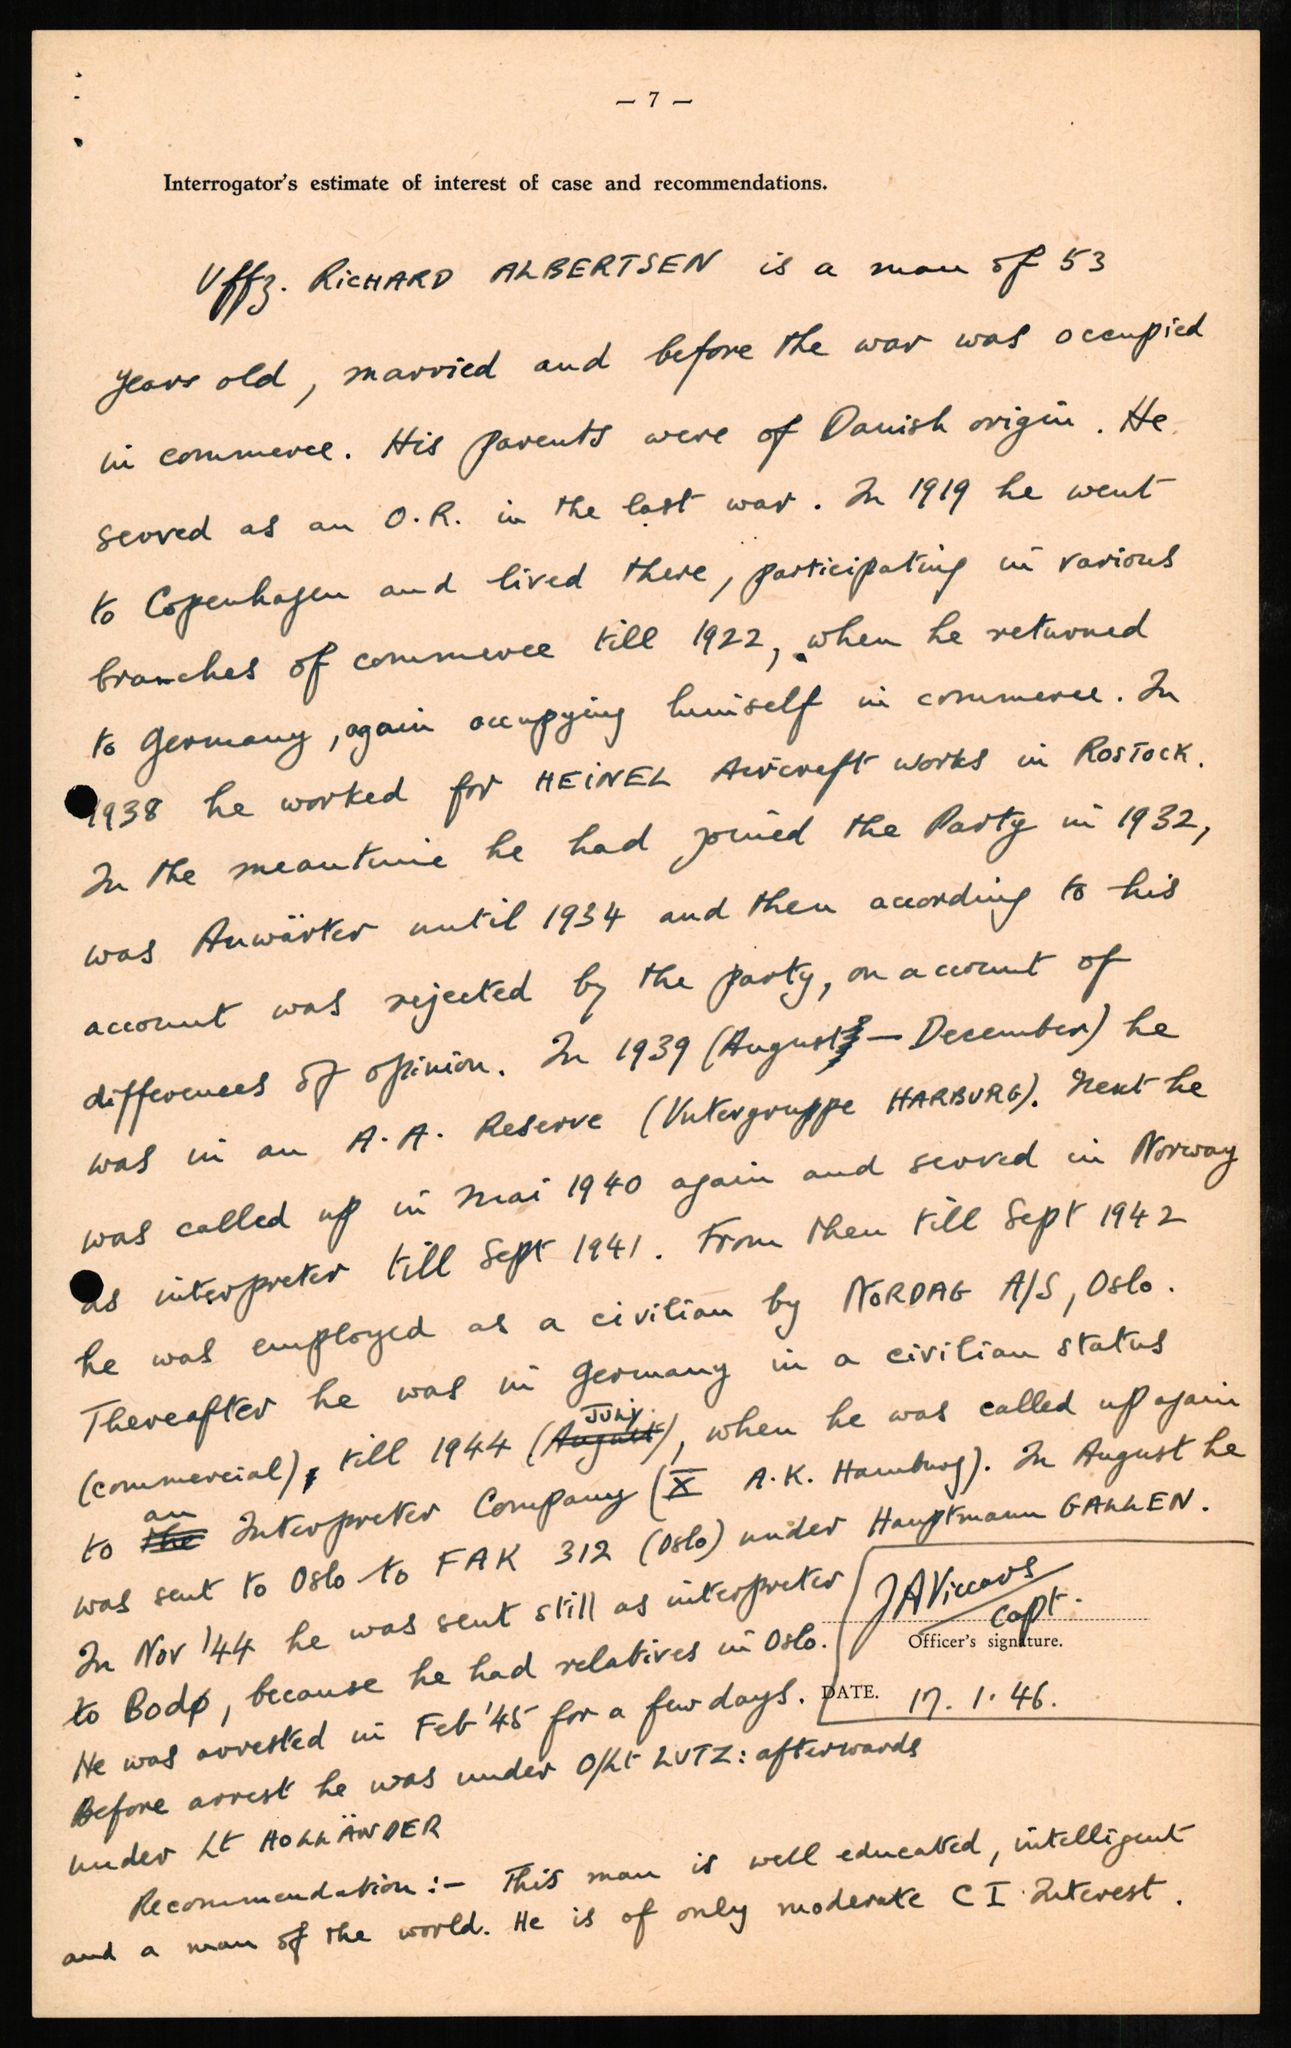 — 7 —
Interrogator's estimate of interest of case and recommendations.
Uffz. RICHARD ALBERTSEN is a man of 53
years old, married and before the war was occupied
in commerce. His parents were of Danish origin. He
served as an O.R. in the last war. In 1919 he went
to Copenhagen and lived there, participating in various
branches of commerce till 1922, when he returned
to Germany, again occupying himself in commerce. In
1938 he worked for HEINEL Aircraft works in ROSTOCK.
In the meantime he had joined the Party in 1932,
was Anwärter until 1934 and then according to his
account was rejected by the party, on account of
differences of opinion. In 1939 (August — December) he
was in an A.A. Reserve (Untergruppe HARBURG). Next he
was called up in Mai 1940 again and served in Norway
as interpreter till Sept 1941. From then till Sept 1942
he was employed as a civilian by NORDAG A/S, Oslo.
Thereafter he was in Germany in a civilian status
(commercial), till 1944 (August JULY), when he was called up again
to the an Interpreter Company (X A.K. Hamburg). In August he
was sent to Oslo to FAK 312 (Oslo) under Hauptmann GALLEN.
In Nov '44 he was sent still as interpreter
to Bodø, because he had relatives in Oslo.
He was arrested in Feb '45 for a few days.
Before arrest he was under O/Lt LUTZ: afterwards
under Lt HOLLÄNDER
JAViccars
Capt.
Officer's signature.
DATE. 17. 1. 46.
Recommendation:- This man is well educated, intelligent
and a man of the world. He is of only moderate C I Interest.